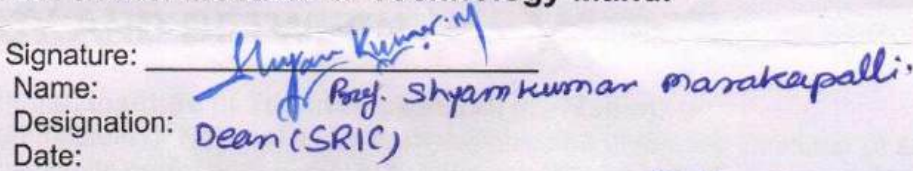 Technology Mandi
Signature: Shyam Kumar.M
Name: Prof. Shyamkumar Masakapalli.
Designation: Dean (SRIC)
Date: